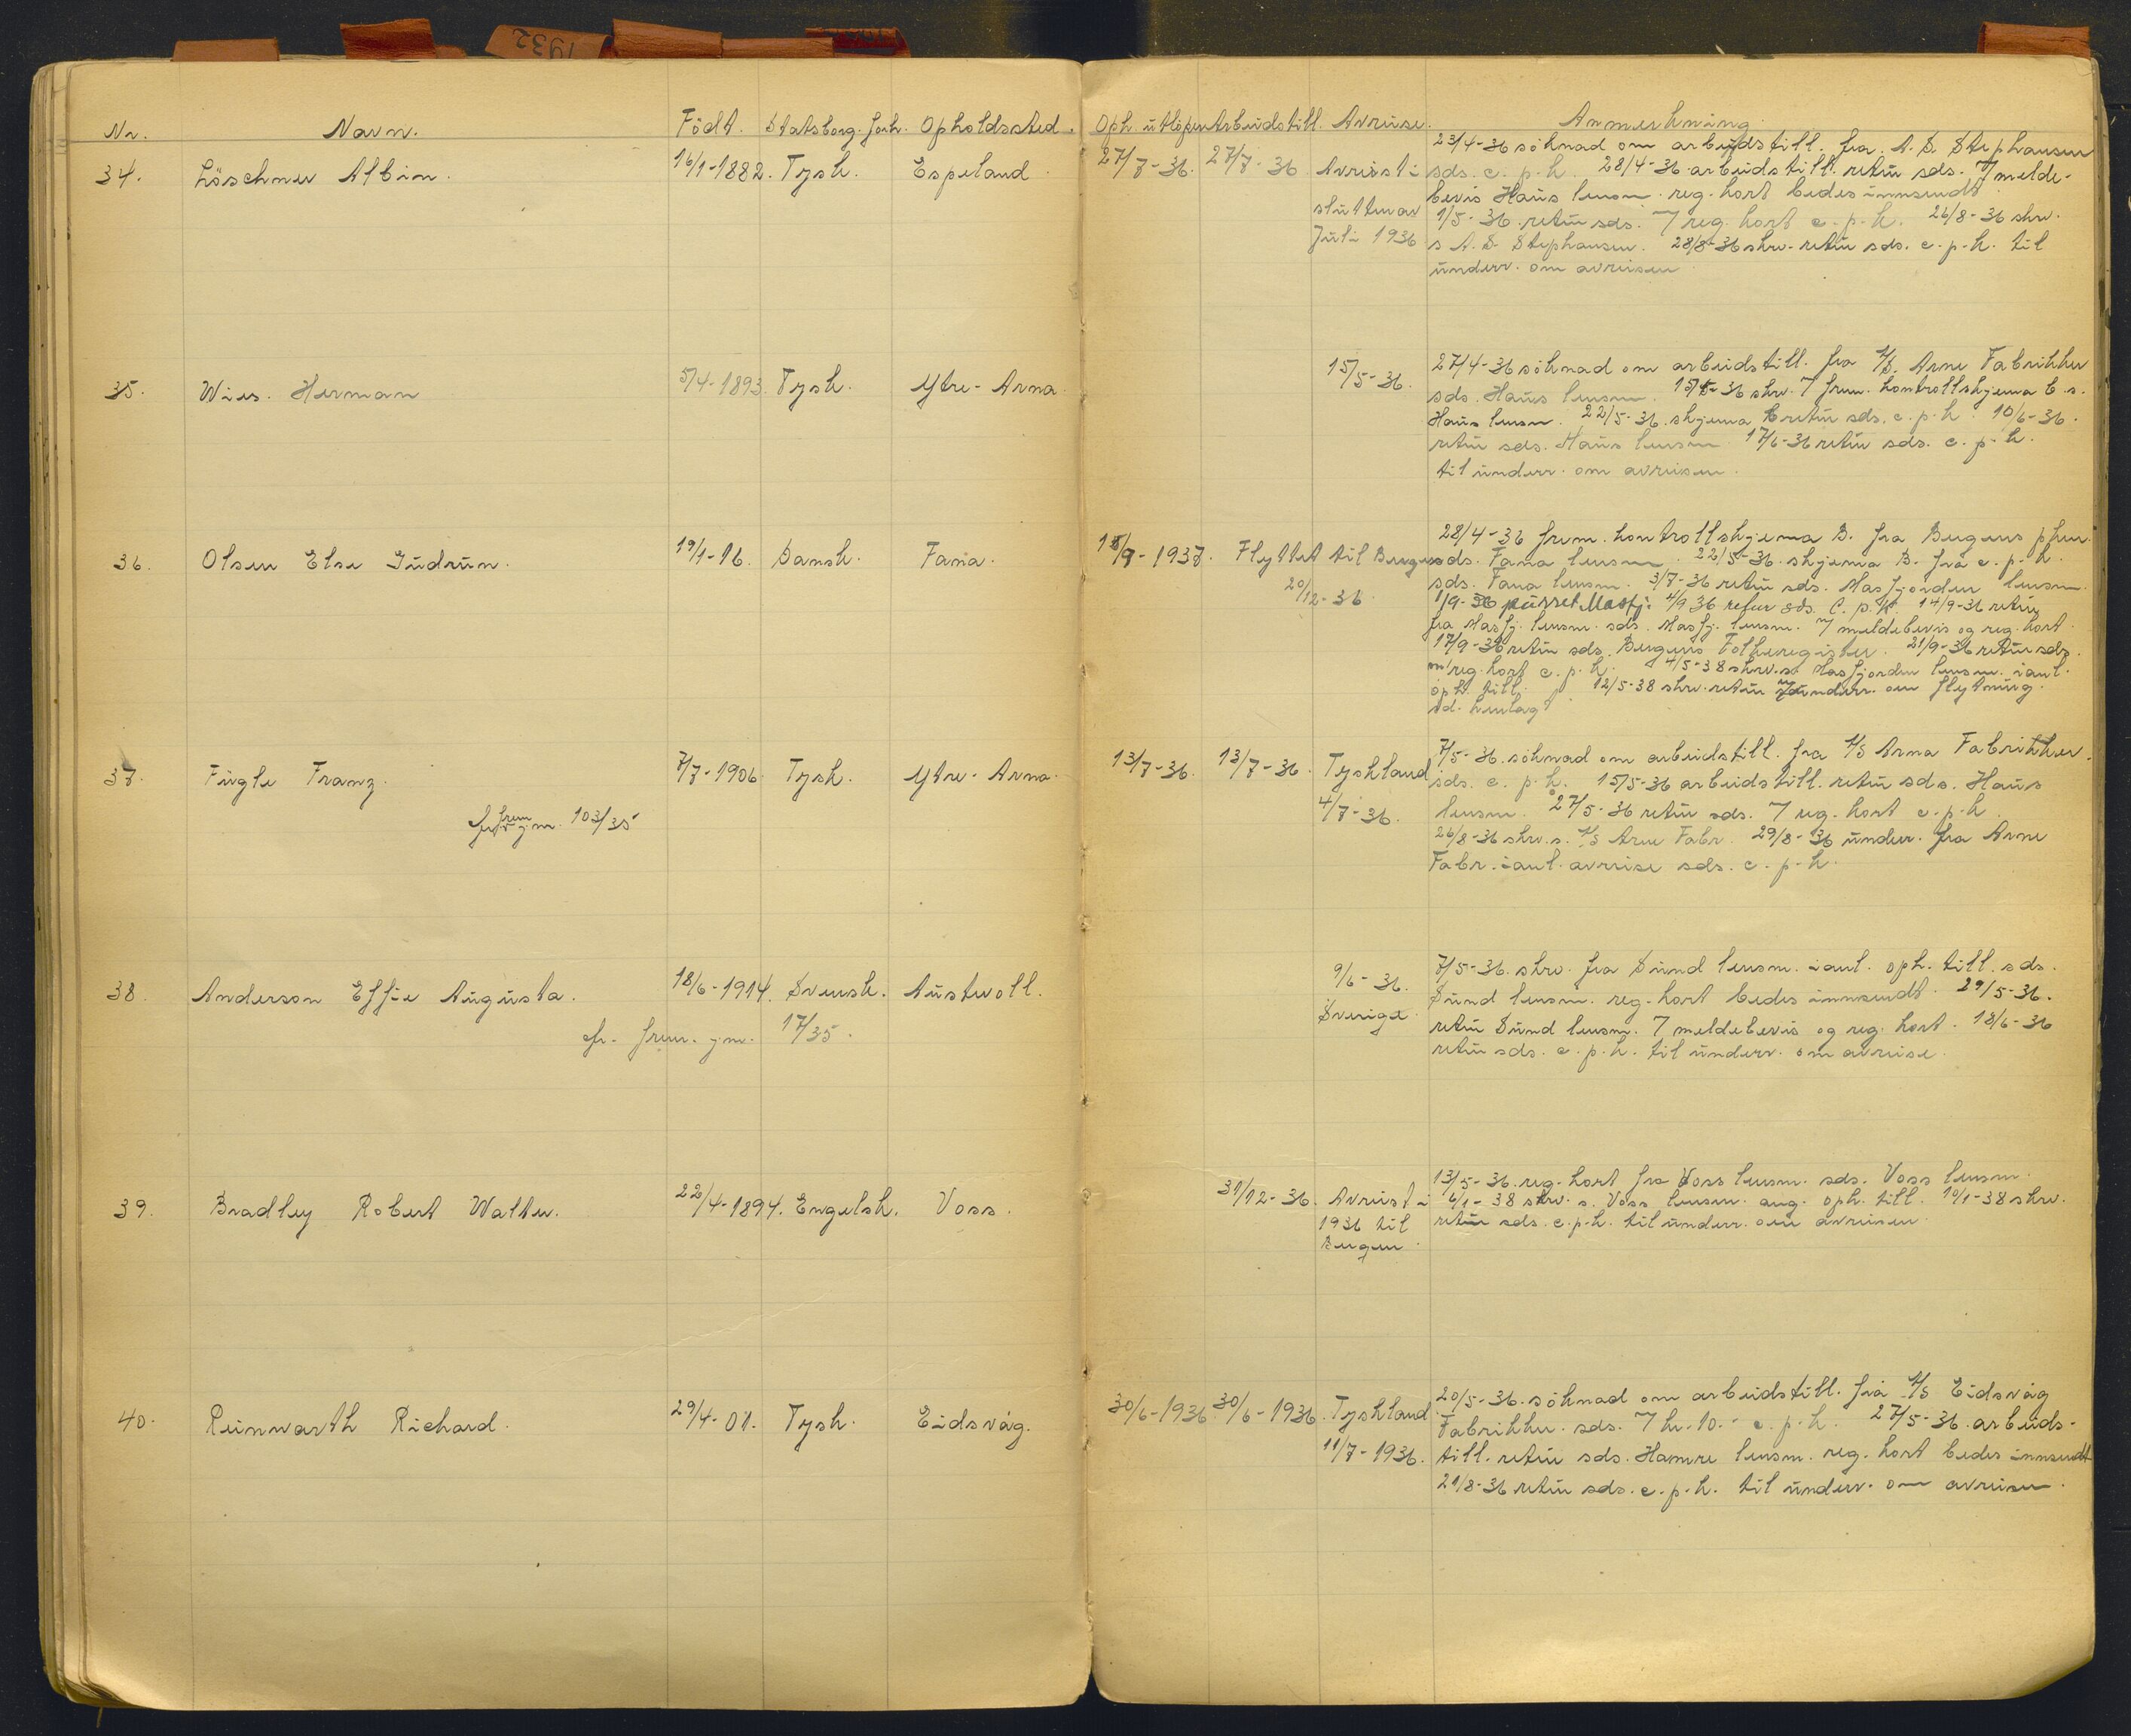 1932
Nr. Navn. Födt. Statsborg. forh. Opholdssted. Oph. utlöper Arbeidstill. Avreise. Anmerkning.
34. Löschner Albin. 16/1-1882. Tysk. Espeland. 27/7-36. 27/7-36 Avreist i
slutten av
Juli 1936
23/4-36 söknad om arbeidstill. fra A. S. Stephansen
sds. c. p. k. 28/4-36 arbeidstill. retur sds. 7 melde-
bevis Haus lensm. reg. kort bedes innsendt
1/5-36. retur sds. 7 reg. kort c. p. k. 26/8-36 skr.
s A. S. Stephansen. 28/8-36 skr. retur sds. c. p. k. til
underr. om avreisen
35. Wies. Herman 5/4-1893. Tysk. Ytre-Arna. 15/5-36.
27/4-36 söknad om arbeidstill. fra A/S. Arne Fabrikker
sds. Haus lensm. 15/5-36 skr. 7 frem. kontrollskjema b. s.
Haus lensm. 22/5-36. skjema B retur sds. c. p. k. 10/6-36.
retur sds. Haus lensm. 17/6-36 retur sds. c. p. k.
til underr. om avreisen.
36. Olsen Else Gudrun. 19/1-16. Dansk. Fana. 15/9-1937. Flyttet til Bergen
20/12-36.
28/4-36 frem. kontrollskjema B. fra Bergens pkm.
sds. Fana lensm. 22/5-36. skjema B. fra c. p. k.
sds. Fana lensm. 3/7-36 retur sds. Masfjorden lensm.
1/9-36 purret Masfj. 4/9 36 retur sds. C. p. k. 14/9-36 retur
fra Masfj. lensm. sds. Masfj. lensm. 7 meldebevis og reg. kort.
17/9-36 retur sds. Bergens Folkeregister. 21/9-36 retur sds.
m/reg. kort c. p. k. 4/5-38 skrv. s. Masfjorden lensm. i anl.
oph. till. 12/5-38 skr. retur underr. om flytning.
sd. henlagt
37. Fügle Franz. 7/7-1906. Tysk. Ytre-Arna. 13/7-36. 13/7-36. Tyskland
4/7-36.
frem jm. 103/35
7/5-36. söknad om arbeidstill. fra A/S Arna Fabrikker.
sds. c. p. k. 15/5-36 arbeidstill. retur sds. Haus
lensm. 27/5-36 retur sds. 7 reg. kort c. p. k.
26/8-36 skr. s. A/S Arne Fabr. 29/8-36 underr. fra Arne
Fabr. i anl. avreise sds. c. p. k.
38. Anderson Effie Augusta. 18/6-1914. Svensk. Austevoll. 9/6-36.
Sverige.
cfr. frem. jm. 17/35.
7/5-36. skr. fra Sund lensm. i anl. oph. till. sds.
Sund lensm. reg. kort bedes innsendt. 29/5-36.
retur Sund lensm. 7 meldebevis og reg. kort. 18/6-36
retur sds. c. p. k. til underr. om avreise.
39. Bradley Robert Walter. 22/4-1894. Engelsk. Voss. 31/12-36. Avreist i
1936 til
Bergen.
13/5-36. reg. kort fra Voss lensm. sds. Voss lensm.
6/1-38 skrv. s. Voss lensm. ang. oph. till. 10/1-38 skrv.
retur sds. c. p. k. til underr. om avreisen.
40. Reinwarth Richard. 29/4-01. Tysk. Eidsvåg. 30/6-1936. 30/6-1936. Tyskland
11/7-1936.
20/5-36. söknad om arbeidstill. fra A/S Eidsvåg
Fabrikker. sds. 7 kr. 10.- c. p. k. 27/5-36. arbeids-
till. retur sds. Hamre lensm. reg. kort bedes innsendt
21/8-36 retur sds. c. p. k. til underr. om avreisen.